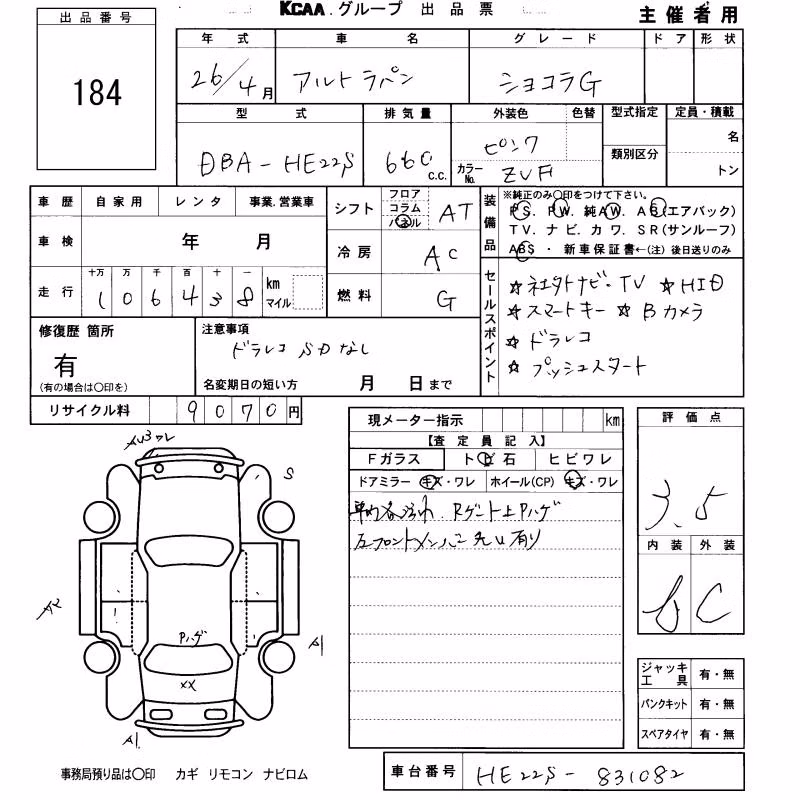 KCAA.グループ 出品票
主催者用
出品番号
184
年式 車名 グレード ドア 形状
26/4月 アルトラパン ショコラG
型式 排気量 外装色 色替 型式指定 定員・積載
DBA-HE22S 660 c.c. ピンク 類別区分 名
カラーNo. ZVH トン
車歴 自家用 レンタ 事業.営業車
車検 年 月
走行 十万 万 千 百 十 一
106438 km マイル
シフト フロア コラム パネル AT
冷房 AC
燃料 G
装備品
※純正のみ○印をつけて下さい。
PS. PW. 純AW. AB(エアバック)
TV. ナビ. カワ. SR(サンルーフ)
ABS ・ 新車保証書←(注) 後日送りのみ
セールスポイント
☆ TV ☆HID
☆スマートキー ☆ Bカメラ
☆ ドラレコ
☆ プッシュスタート
修復歴 箇所
有
(有の場合は○印を)
注意事項
ドラレコ SDなし
名変期日の短い方 月 日まで
リサイクル料 9070円
現メーター指示 km
【査定員記入】
Fガラス トビ石 ヒビワレ
ドアミラー キズ・ワレ ホイール(CP) キズ・ワレ
Rゲート上Pハゲ
左フロントメンバー 有り
評価点
3.5
内装 外装
C
ジャッキ工具 有・無
パンクキット 有・無
スペアタイヤ 有・無
AU3 ワレ
S
A2
Pハゲ
A1
XX
A1
事務局預り品は○印 カギ リモコン ナビロム
車台番号 HE22S-831082